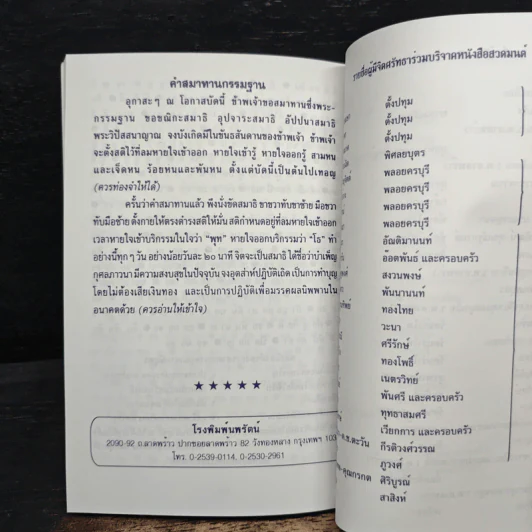 คำสมาทานกรรมฐาน
อุกาสะๆ ณ โอกาสบัดนี้ ข้าพเจ้าขอสมาทานซึ่งพระ-
กรรมฐาน ขอขณิกะสมาธิ อุปจาระสมาธิ อัปปนาสมาธิ
พระวิปัสสนาญาณ จงบังเกิดมีในขันธสันดานของข้าพเจ้า ข้าพเจ้า
จะตั้งสติไว้ที่ลมหายใจเข้าออก หายใจเข้ารู้ หายใจออกรู้ สามหน
และเจ็ดหน ร้อยหนและพันหน ตั้งแต่บัดนี้เป็นต้นไปเทอญ
(ควรท่องจำให้ได้)
ครั้นว่าคำสมาทานแล้ว พึงนั่งขัดสมาธิ ขาขวาทับขาซ้าย มือขวา
ทับมือซ้าย ตั้งกายให้ตรงดำรงสติให้มั่น สติกำหนดอยู่ที่ลมหายใจเข้าออก
เวลาหายใจเข้าบริกรรมในใจว่า "พุท" หายใจออกบริกรรมว่า "โธ" ทำ
อย่างนี้ทุกๆ วัน อย่างน้อยวันละ ๒๐ นาที จิตจะเป็นสมาธิ ได้ชื่อว่าบำเพ็ญ
กุศลภาวนา มีความสงบสุขในปัจจุบัน จงอุตส่าห์ปฏิบัติเถิด เป็นการทำบุญ
โดยไม่ต้องเสียเงินทอง และเป็นการปฏิบัติเพื่อมรรคผลนิพพานใน
อนาคตด้วย (ควรอ่านให้เข้าใจ)
★ ★ ★ ★ ★
โรงพิมพ์นพรัตน์
2090-92 ถ.ลาดพร้าว ปากซอยลาดพร้าว 82 วังทองหลาง กรุงเทพฯ 103
โทร. 0-2539-0114, 0-2530-2961
รายชื่อผู้มีจิตศรัทธาร่วมบริจาคหนังสือสวดมนต์
ตั้งปทุม
ตั้งปทุม
ตั้งปทุม
พิศลยบุตร
พลอยครบุรี
พลอยครบุรี
พลอยครบุรี
พลอยครบุรี
อัณติมานนท์
อ๊อตพันธ์ และครอบครัว
สงวนพงษ์
พันนานนท์
ทองไทย
วะนา
ศรีรักษ์
ทองโพธิ์
เนตรวิทย์
พันศรี และครอบครัว
ทุทธาสมศรี
เวียกการ และครอบครัว
ด.ช.ตะวัน กีรติวงศ์วรรณ
ภูวงศ์
คุณกรกต ศิริบูรณ์
สาสิงห์